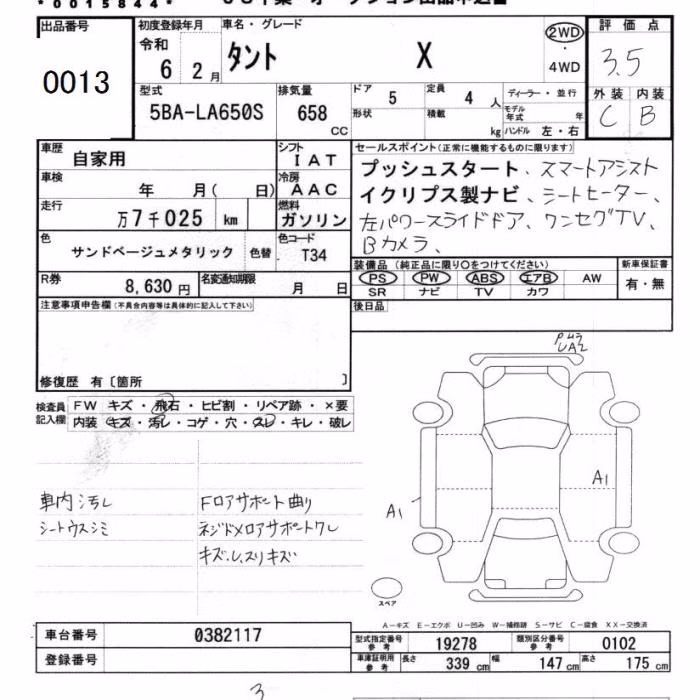 *0015844*
出品番号
0013
初度登録年月
令和
6 2月
車名・グレード
タント X
2WD
・
4WD
評価点
3.5
外装 内装
C B
型式
5BA-LA650S
排気量
658
CC
ドア 5
形状
定員 4 人
積載 kg
ディーラー・並行
モデル年式 年
ハンドル 左・右
車歴
自家用
シフト
IAT
車検
年 月( 日)
冷房
AAC
走行
万7千025 km
燃料
ガソリン
色
サンドベージュメタリック
色替
色コード
T34
R券
8,630円
名変通知期限
月 日
セールスポイント(正常に機能するものに限ります)
プッシュスタート、スマートアシスト
イクリプス製ナビ、シートヒーター、
左パワースライドドア、ワンセグTV、
Bカメラ、
装備品(純正品に限り○をつけてください)
PS PW ABS エアB AW
SR ナビ TV カワ
新車保証書
有・無
後日品
注意事項申告欄(不具合内容等は具体的に記入して下さい)
修復歴 有〔箇所 〕
検査員
記入欄
FW キズ・飛石・ヒビ割・リペア跡・×要
内装 キズ・汚レ・コゲ・穴・スレ・キレ・破レ
車内汚レ
シートウスシミ
Fロアサポート曲り
ネジドメロアサポートワレ
キズ、U、スリキズ
UA2
A1
A1
スペア
A-キズ E-エクボ U-凹み W-補修跡 S-サビ C-腐食 XX-交換済
車台番号
0382117
登録番号
型式指定番号
参考
19278
類別区分番号
参考
0102
車庫証明用
参考
長さ 339 cm
幅 147 cm
高さ 175 cm
3